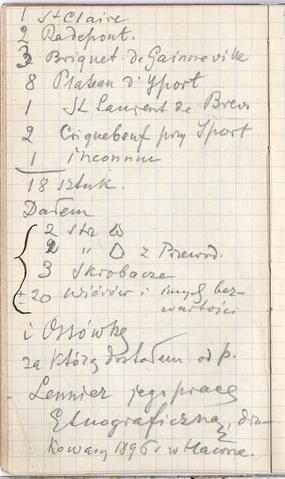 1 St Claire
2 Radepont.
3 Briquet de Gainneville
8 Plateau d'Yport
1 St Laurent de Brev
2 Criquebeuf prez Yport
1 inconnu
18 sztuk.
Dałem
2 strz △
2 " △ z Przewod.
3 Skrobacze
± 20 wiórów i innych bez-
wartości
i Ossówkę
za którą dostałem od p.
Lennier jego pracę
Etnograficzną, dru-
kowaną 1896 r w Havre.